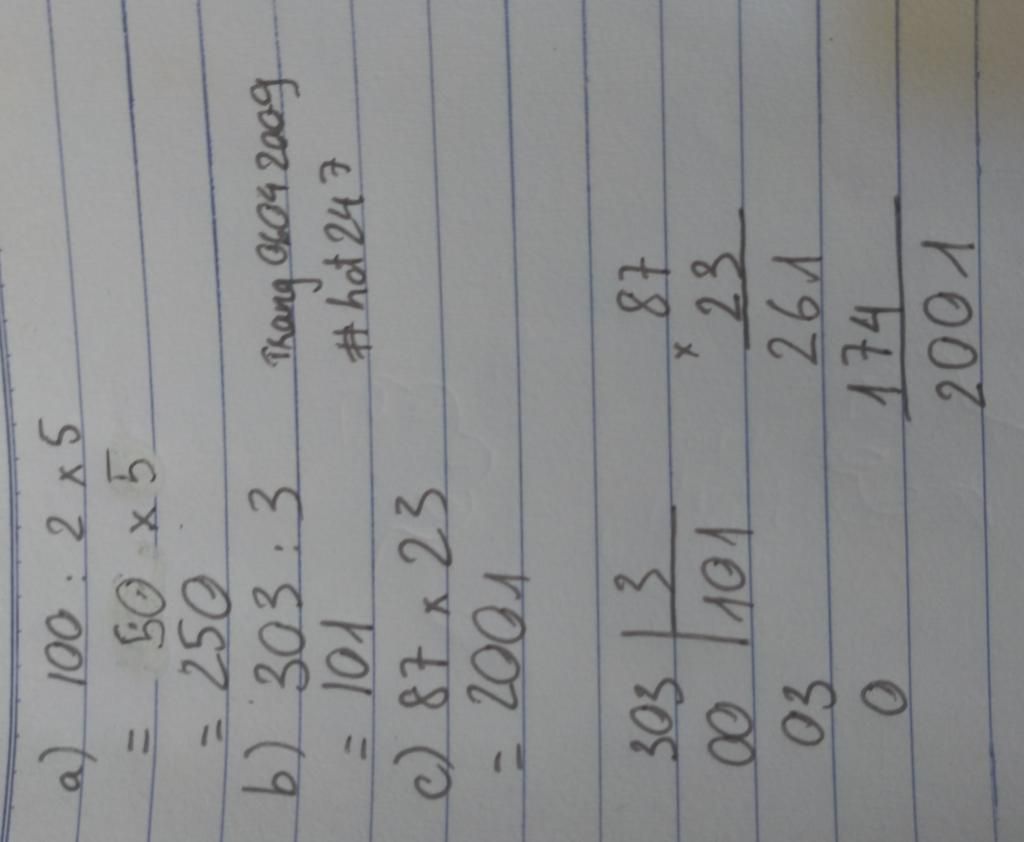 a) 100 : 2 x 5
= 50 x 5
= 250
b) 303 : 3
= 101
Thang 06042009
# hot 247
c) 87 x 23
= 2001
303 | 3
00 | 101
03
0
87
x 23
261
174
2001